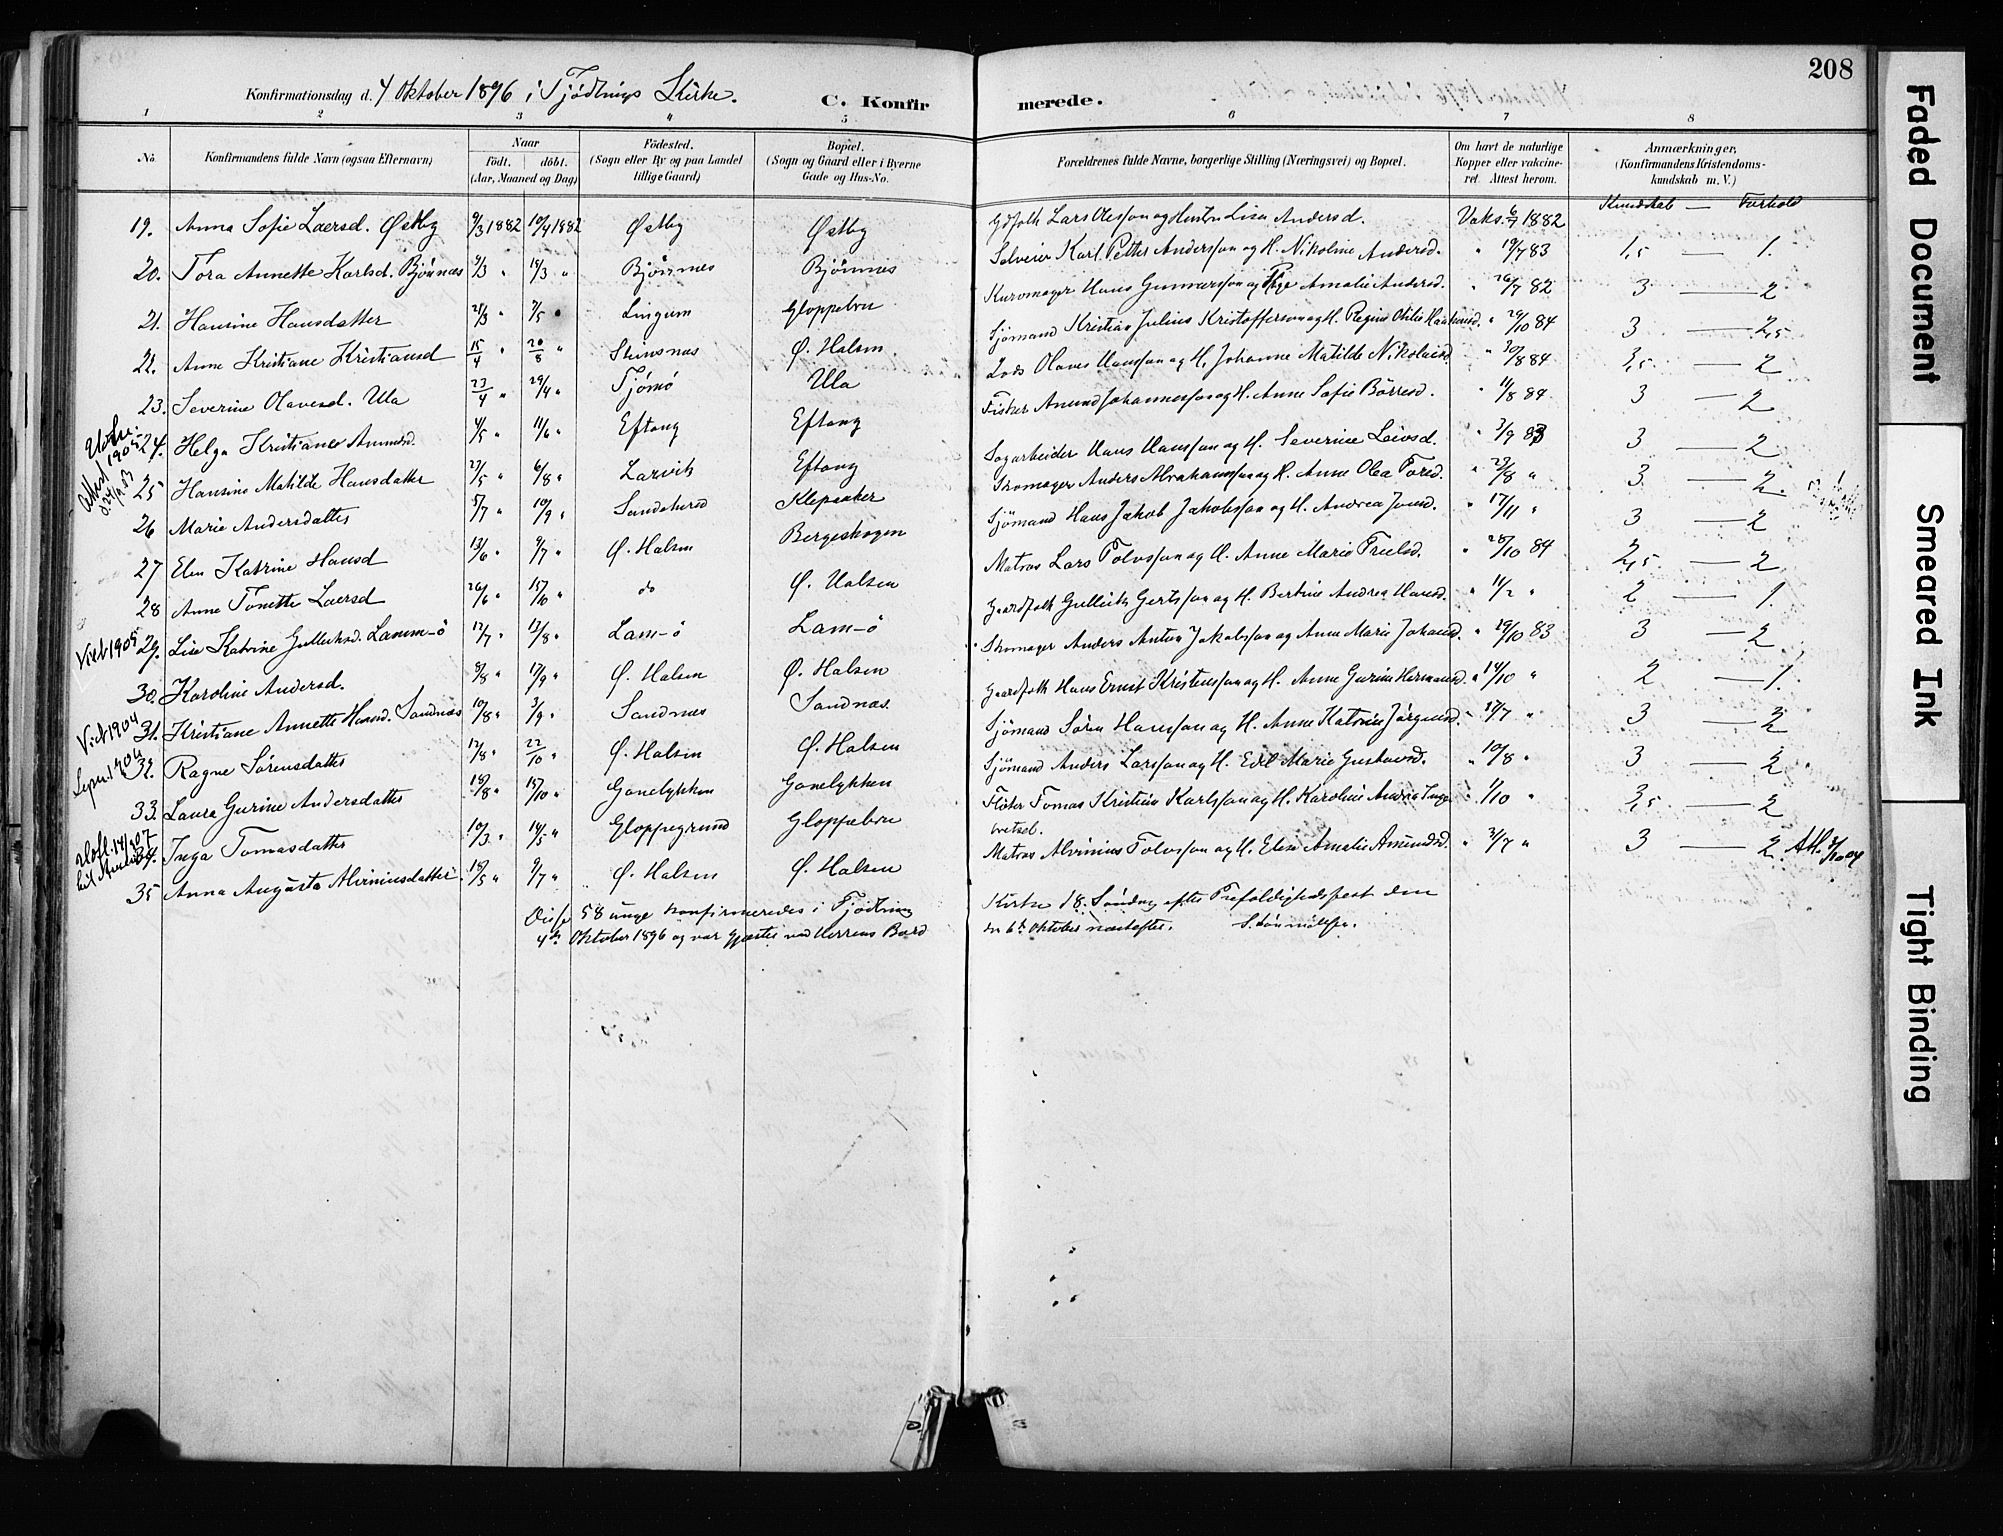 208
Konfirmationsdag d. 4 Oktober 1896 i Tjødlings Kirke. C. Konfirmerede.
1 2 3 4 5 6 7 8
No. Konfirmandens fulde Navn (ogsaa Efternavn) Naar født. døbt. (Aar, Maaned og Dag) Fødested. (Sogn eller By og paa Landet tillige Gaard) Bopæl. (Sogn og Gaard eller i Byerne Gade og Hus-No. Forældrenes fulde Navne, borgerlige Stilling (Næringsvei) og Bopæl. Om havt de naturlige Kopper eller vaccineret. Attest herom. Anmærkninger, (Konfirmandens Kristendomskundskab m. V.)
Kundskab — Forhold
19. Anna Sofie Laersd. Østby 9/3 1882 10/4 1882 Østby Østby Gdfolk Lars Olesson og Hustru Lisa Andersd. Vaks. 6/7 1882 1,5 — 1.
20. Tora Annette Karlsd. Bjønnes 9/3 " 18/3 " Bjønnes Bjønnes Selveier Karl Petter Andersson og H. Nikoline Andersd. " 19/7 83 3 — 2
21. Hansine Hansdatter 21/3 " 7/5 " Lingum Gloppebru Kurvmager Hans Gunnarsson og Pige Amalie Andersd. " 26/7 82 3 — 2,5
22. Anne Kristiane Kristiansd 15/4 " 20/8 " Stensnæs Ø. Halsen Sjømand Kristian Julius Kristoffersson og H. Regine Otilie " 29/10 84 3,5 — 2
23. Severine Olavesd. Ula 23/4 " 29/4 " Tjømø Ula Lods Olaves Hansson og H. Johanne Matilde Nikolaisd " 30/8 84 3 — 2
24. Helga Kristiane Amundsd. 4/5 " 11/6 " Eftang Eftang Fisker Amund Johannesson og H. Anne Sofie Børresd. " 11/8 84 3 — 2
25 Hansine Matilde Hansdatter 27/5 " 6/8 " Larvik Eftang Sagarbeider Hans Hansson og H. Severine Leivsd. " 3/9 83 3 — 2.
26 Marie Andersdatter 5/7 " 10/9 " Sandeherred Klepaaker Skomager Anders Abrahamsson og H. Anne Olea Toresd. " 23/8 " 3 — 2
27 Elen Katrine Hansd 13/6 " 9/7 " Ø. Halsen Bergeskogen Sjømand Hans Jakob Jakobsson og H. Andrea Jonsd. " 17/11 " 2,5 — 2
28 Anne Tonette Laersd 26/6 " 15/10 " do Ø. Halsen Matros Lars Tolvsson og H. Anne Marie Truelsd. " 28/10 84 2 — 1.
29. Lise Katrine Gulliksd. Lamm-ø 12/7 " 13/8 " Lam-ø Lam-ø Gaardfolk Gullik Gertsson og H. Bertine Andrea Hansd. " 11/2 " 3 — 2
30. Karoline Andersd. 8/8 " 17/9 " Ø. Halsen Ø. Halsen Skomager Anders Anton Jakobsson og Anne Marie Johansd. " 29/10 83 2 — 1.
31. Kristiane Annette Hansd. Sandnæs 10/8 " 3/9 " Sandnæs Sandnæs. Gaardfolk Hans Ernst Kristensson og H. Anne Gurine Hermansd. " 14/10 " 3 — 2
32. Ragne Sørensdatter 12/8 " 22/10 " Ø. Halsen Ø. Halsen Sjømand Søren Hansson og H. Anne Katrine Jørgensd. " 17/7 " 3 — 2
33. Laura Gurine Andersdatter 18/8 " 15/10 " Gonelykken Gonelykken Sjømand Anders Larsson og H. Edel Marie Gustavsd. " 10/8 " 3,5 — 2
34. Inga Tomasdatter 10/3 " 14/5 " Gloppegrund Gloppebru Fløter Tomas Kristian Karlsson og H. Karoline Andrea " 1/10 " 3 — 2.
35 Anna Augusta Alviniusdatter 18/5 " 9/7 " Ø. Halsen Ø. Halsen Matros Alvinius Tolvsson og H. Elise Amalie Amundsd. " 3/7 "
Att. 3/10 04
Attest
Viet 1905
Viet 1904
1904
Disse 58 unge konfirmeredes i Tjødling Kirke 18. Søndag efter Trefoldighedsfest den
4de Oktober 1896 og var gjester ved Herrens Bord den 6te Oktober næstefter.
Faded Document
Smeared Ink
Tight Binding